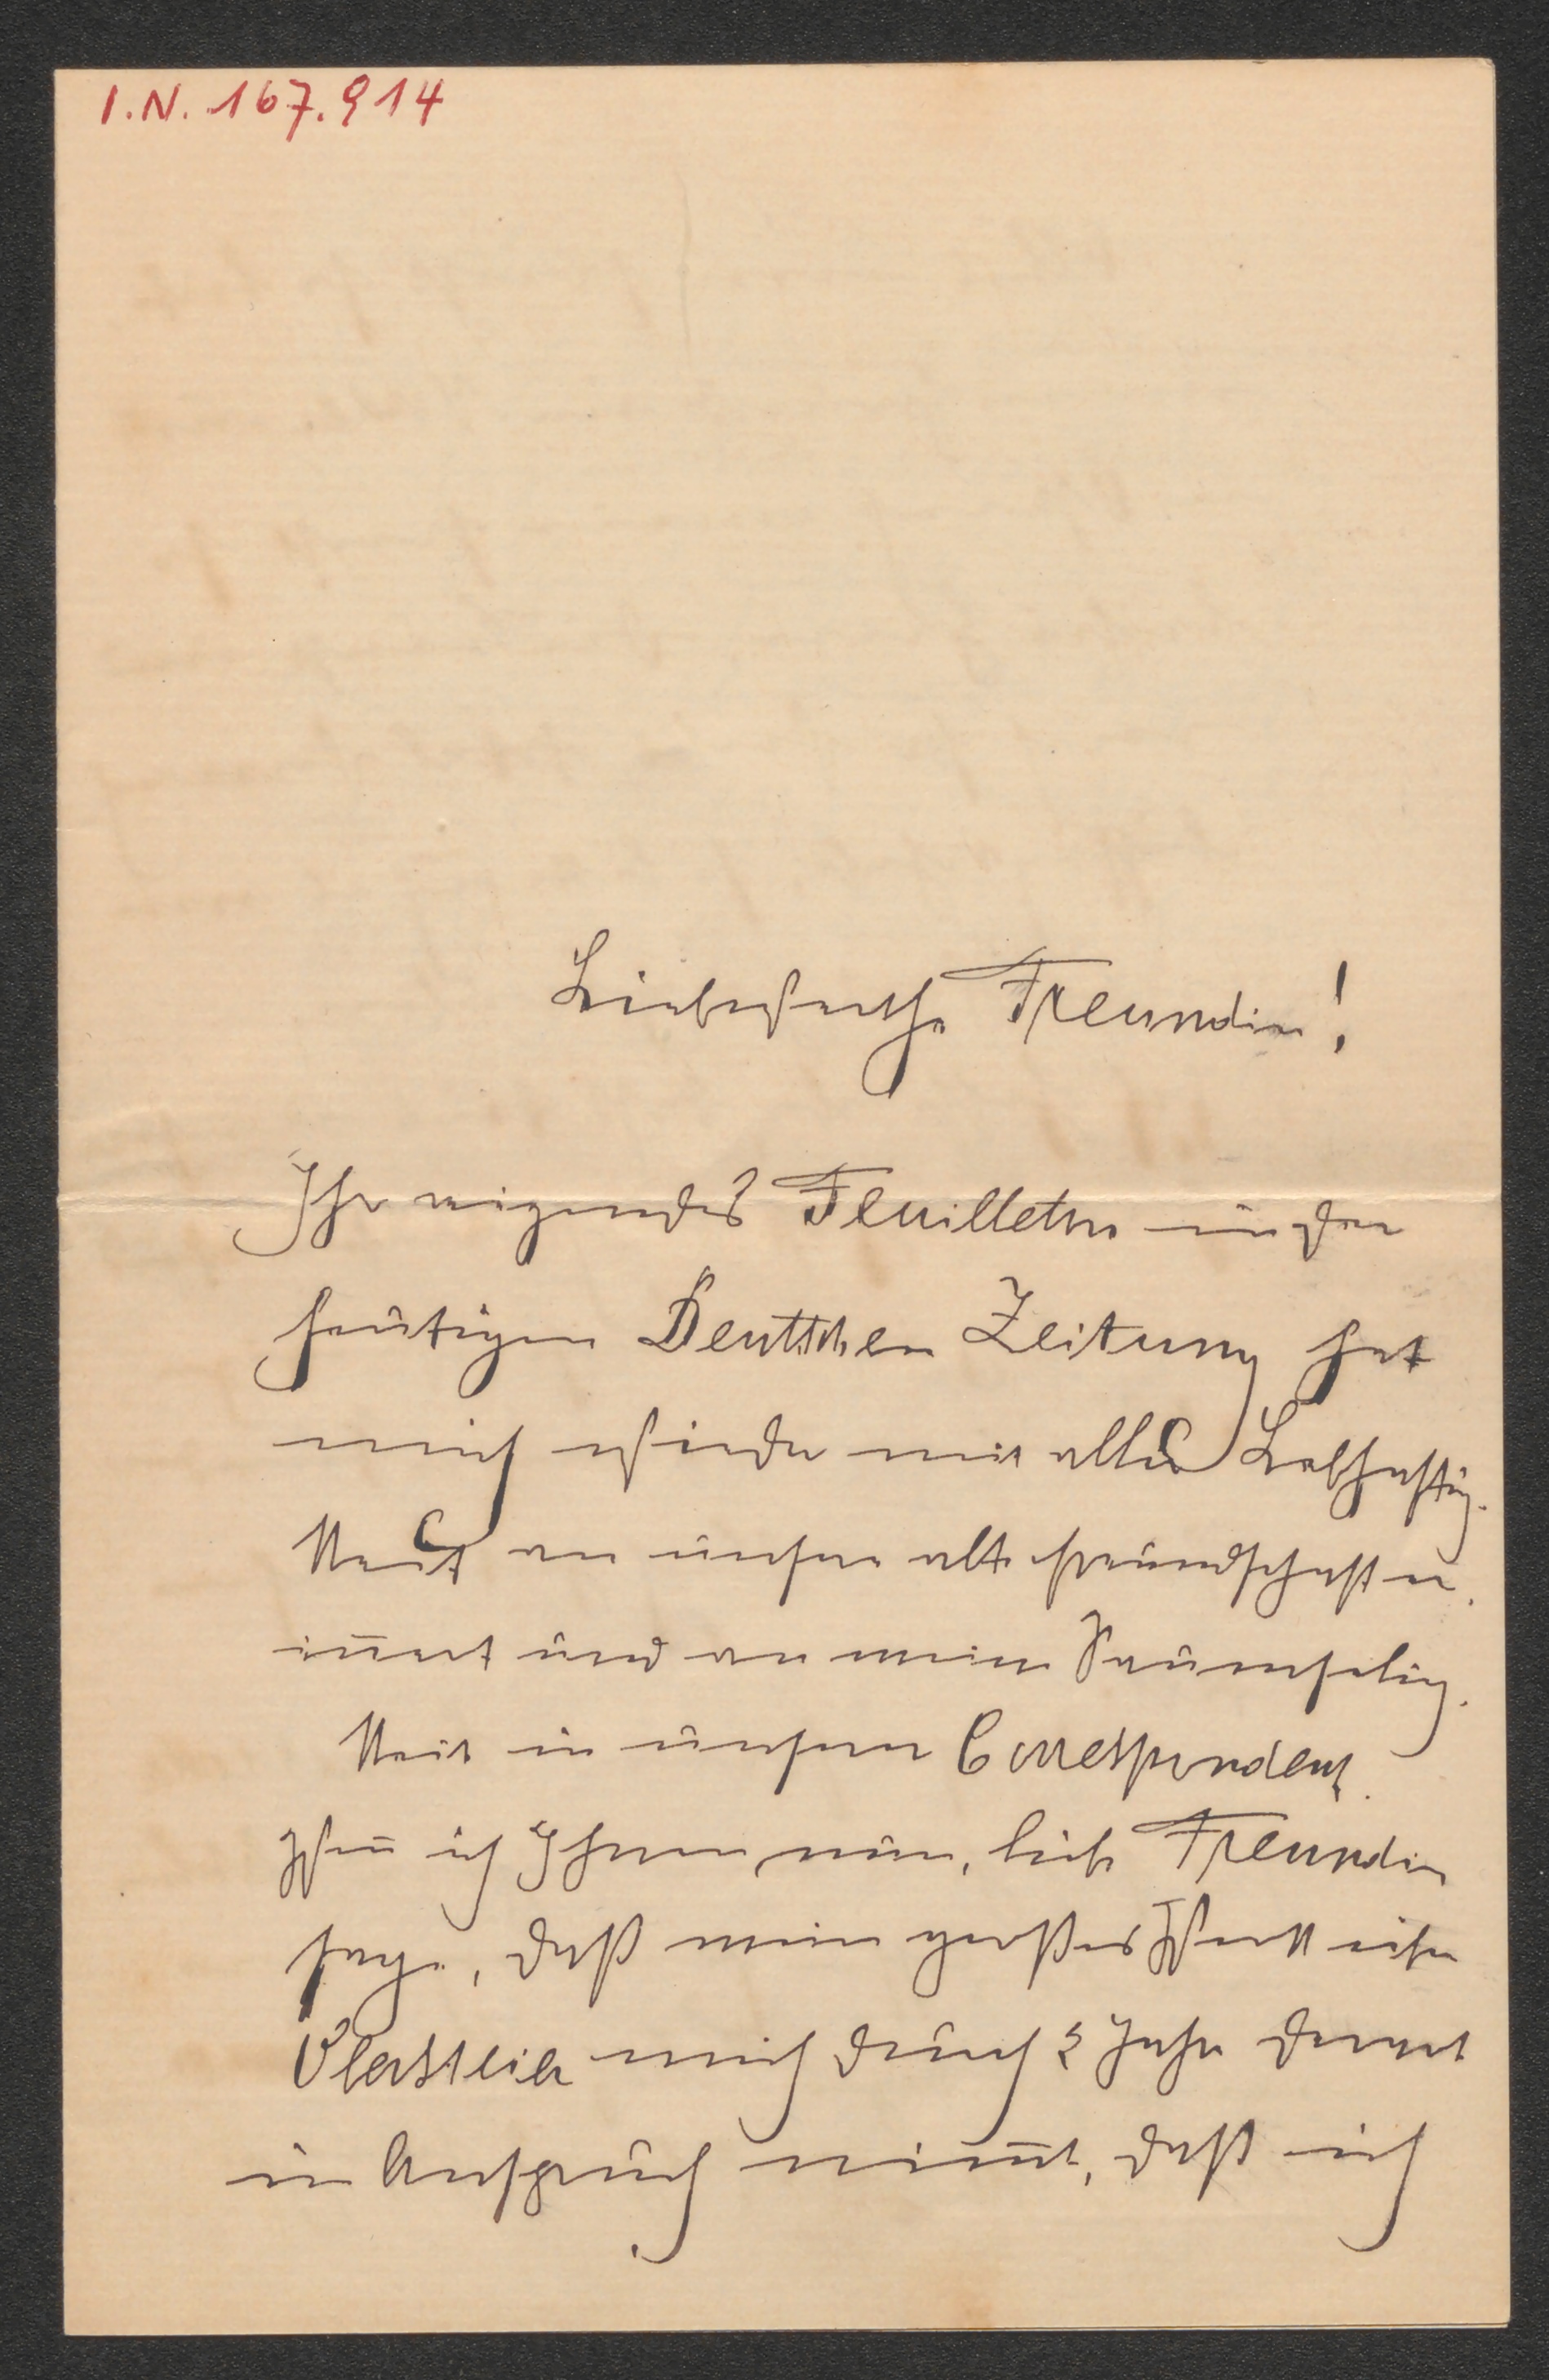 I.N. 167.914
Liebwerthe Freundin!
Ihr reizendes Feuilleton in der
heutigen Deutschen Zeitung hat
mich wieder mit aller Lebhaftig-
keit an unsere alte Freundschaft er-
iñert und an meine Saumselig-
keit in unserer Correspondenz.
Weñ ich Ihnen nun, liebe Freundin
sage, daß mein großes Werk über
mich durch 2 Jahre derart
in Anspruch nim̃t, daß ich